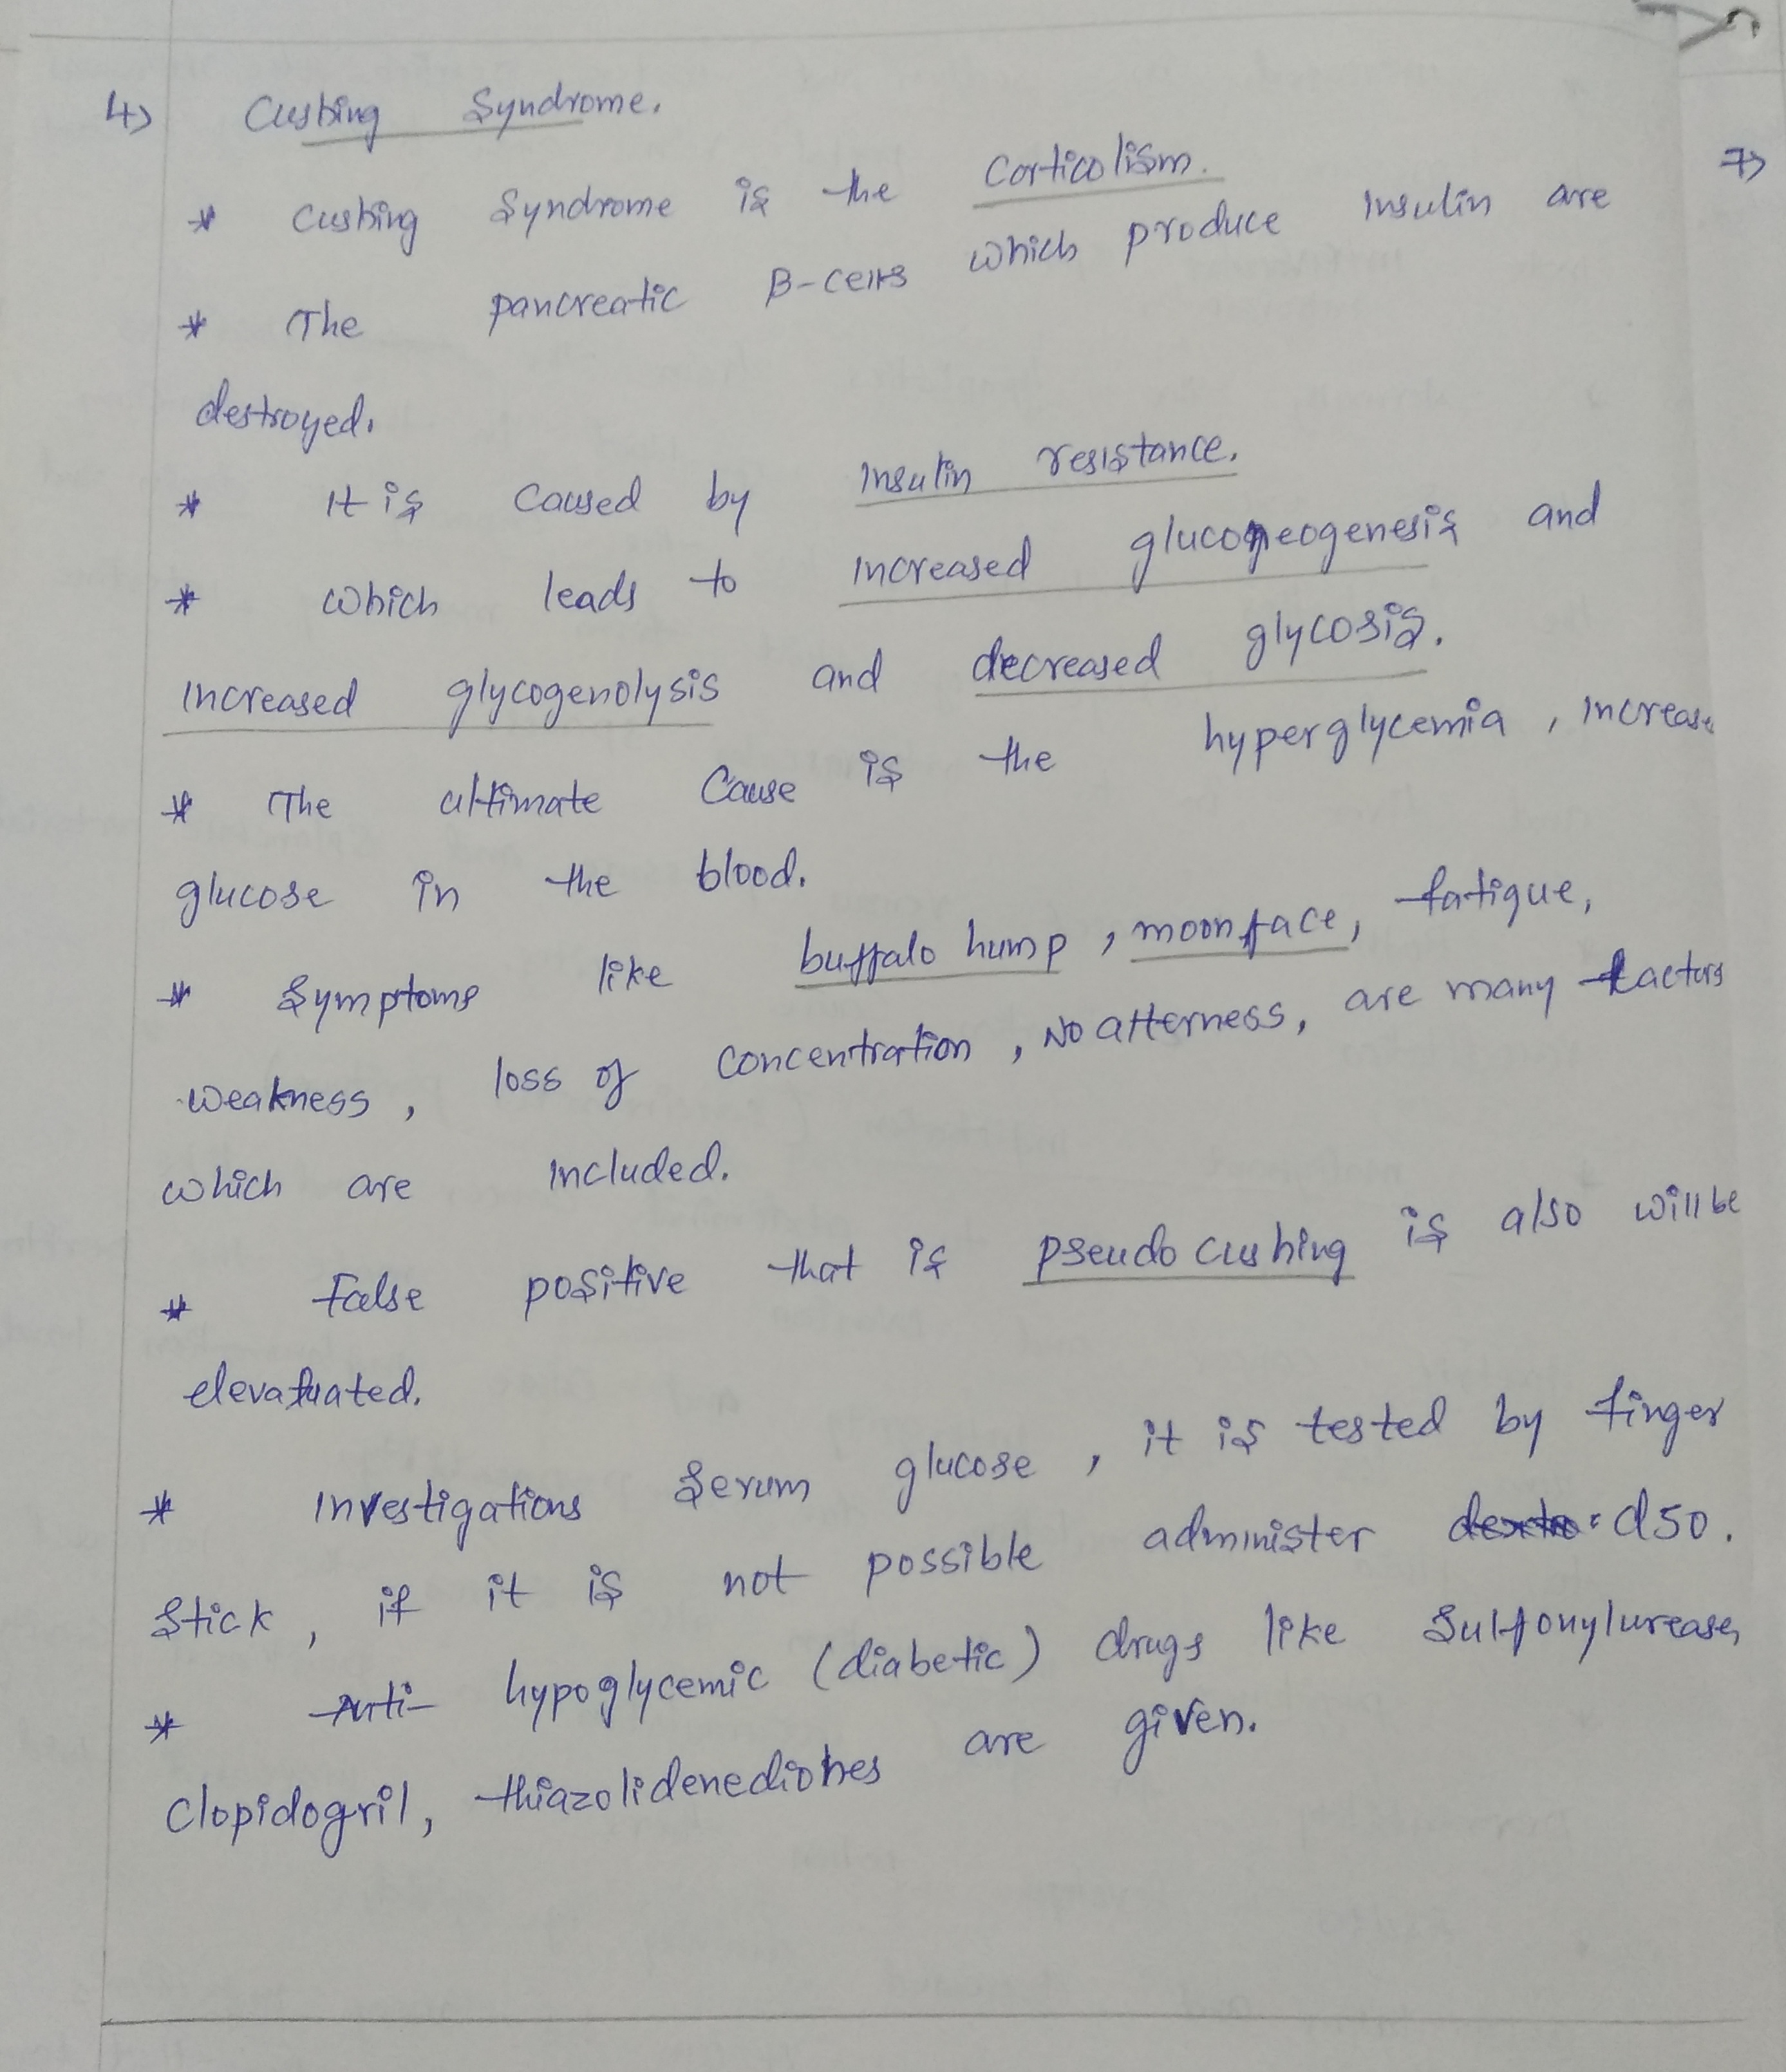 4) Cushing Syndrome.
* Cushing Syndrome is the Corticolism.
7)
* The pancreatic B-cells which produce insulin are
destroyed.
* It is caused by insulin resistance.
* which leads to increased gluconeogenesis and
increased glycogenolysis and decreased glycosis.
* The ultimate cause is the hyperglycemia, increase
glucose in the blood.
* Symptoms like buffalo hump, moonface, fatigue,
weakness, loss of concentration, No atterness, are many factors
which are included.
* False positive that is pseudo cushing is also will be
elevatuated.
* Investigations Serum glucose, it is tested by finger
Stick, if it is not possible administer d50.
* Anti- hypoglycemic (diabetic) drugs like Sulfonylurease,
Clopidogril, thiazolidenediones are given.